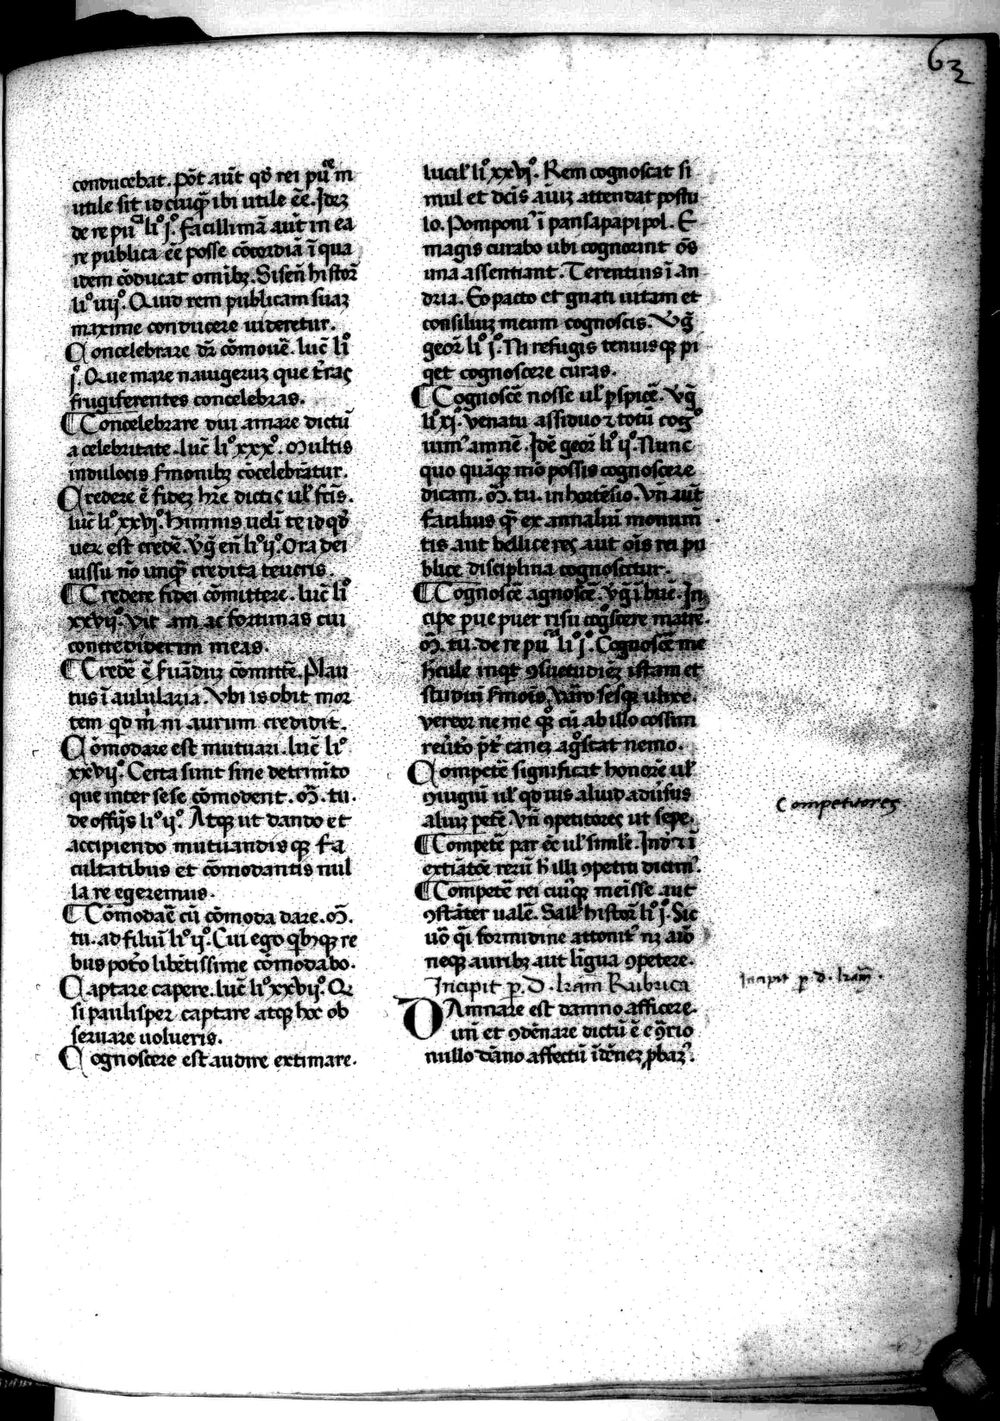 63
conducebat. põt aũt qđ rei puᵉ m
utile sit id cuiqꝫ ibi utile ẽe. Idez
de re puᵃ liᵒ .jᵒ. Facillimã aũt in ea
re publica ẽe posse cõcordiã ĩ qua
idem cõducat omĩbꝫ. Siseñ histoꝝ
liᵒ iiijᵒ. Quid rem publicam suaꝫ
maxime conducere uideretur.
Concelebrare dr̃ cõmouẽ. luc̃ liᵒ
jᵒ. Que mare nauigeruꝫ que tr̃aꝭ
frugiferentes concelebras.
¶ Concelebrare diu amare dictũ
a celebritate. luc̃ liᵒ xxxᵒ. Multis
indulocis ẜmonibꝫ cõcelebrãtur.
Credere ẽ fidez hr̃e dictiꝭ ul̃ fc̃is.
luc̃ liᵒ xxvjᵒ. himnis ueli te id qđ
ueꝫ est credẽ. Vg̃ eñ liᵒ ijᵒ. Ora dei
iussu nõ unqꝫ credita teucris.
¶ Credere fidei cõmittere. luc̃ liᵒ
xxvijᵒ. Vit am ac fortunas cui
contre diderim meas.
¶ Credẽ ẽ ẜuãduꝫ cõmittẽ. Plau
tus ĩ aulularia. Vbi is obit mor
tem qđ m̃ ni aurum credidit.
Cõmodare est mutuari. luc̃ liᵒ
xxvijᵒ. Certa sunt sine detrim̃to
que inter sese cõmodent. M̃. tu.
de offijs liᵒ ijᵒ. Atqꝫ ut dando et
accipiendo mutuandisqꝫ fa
cultatibus et cõmodantis nul
la re egeremus.
¶ Cõmodaẽ cũ cõmoda dare. M̃.
tu. ad filiuĩ liᵒ ijᵒ. Cui ego qͥbꝫqꝫ re
bus pot̃o libẽtissime cõmodabo.
Captare capere. luc̃ liᵒ xxvijᵒ. Qr̃
si paulisper captare atqꝫ hoc ob
seruare uolueris.
Cognoscere est audire extimare.
lucil̃ liᵒ xxvjᵒ. Rem cognoscat si
mul et dc̃is auiꝫ attendat postu
lo. Pomponiꝰ ĩ pansapapi pol. E
magis curabo ubi cognorint oẽs
una assentiant. Terentius ĩ an
dria. Eo pacto et gnati uitam et
consiliuꝫ meum cognoscis. Vg̃
geoꝝ liᵒ jᵒ. Ni refugis tenuisqꝫ pi
get cognoscere curas.
¶ Cognoscẽ nosse ul̃ ꝑspicẽ. Vg̃
liᵒ xjᵒ. venatu assiduo ⁊ totũ cogᵒ
uimꝰ amnẽ. Idẽ geoꝝ liᵒ ijᵒ. Nunc
quo quãqꝫ mõ possis cognoscere
dicam. M̃. tu. in hortẽsio. Vñ aũt
facilius qꝫ ex annaliuĩ monum̃
tis aut bellice reꝭ aut oĩs rei pu
blice disciplina cognoscitur.
¶ Cognoscẽ agnoscẽ. Vg̃ ĩ buc̃. In
cipe parue puer risu cog̃scere matrẽ.
M̃. tu. de re puᵃ liᵒ jᵒ. Cognoscẽ me
hercule inqͭ ꝯsuetudieꝫ istam et
studiuĩ ẜmoĩs. Varo sesqꝫ ulixe.
vereor ne me qꝫ cũ ab illo cossim
reũto p̃t caneꝫ ag̃scat nemo.
Competẽ significat honorẽ ul̃
ꝯiugiũ ul̃ qđ uis aliud aduĩsus
aliuꝫ petẽ. Vñ ꝯpetitores ut sepe.
¶ Competẽ par ẽe ul̃ similẽ.
¶ Competẽ rei cuiqꝫ meĩsse aut
ꝯstãter ualẽ. Sall̃ histoꝝ liᵒ jᵒ. Sic
uõ qͥ formidine attonitꝰ
neqꝫ auribꝫ aut ligua ꝯpetere.
Incipit ꝑ .D. lr̃am Rubrica
DAmnare est damno afficere.
uñ et ꝯdẽnare dictũ ẽ
nullo dãno affectũ ĩdẽneꝫ ꝓbaꝫꝰ.
Competitores
Incipit ꝑ .d. lr̃am.